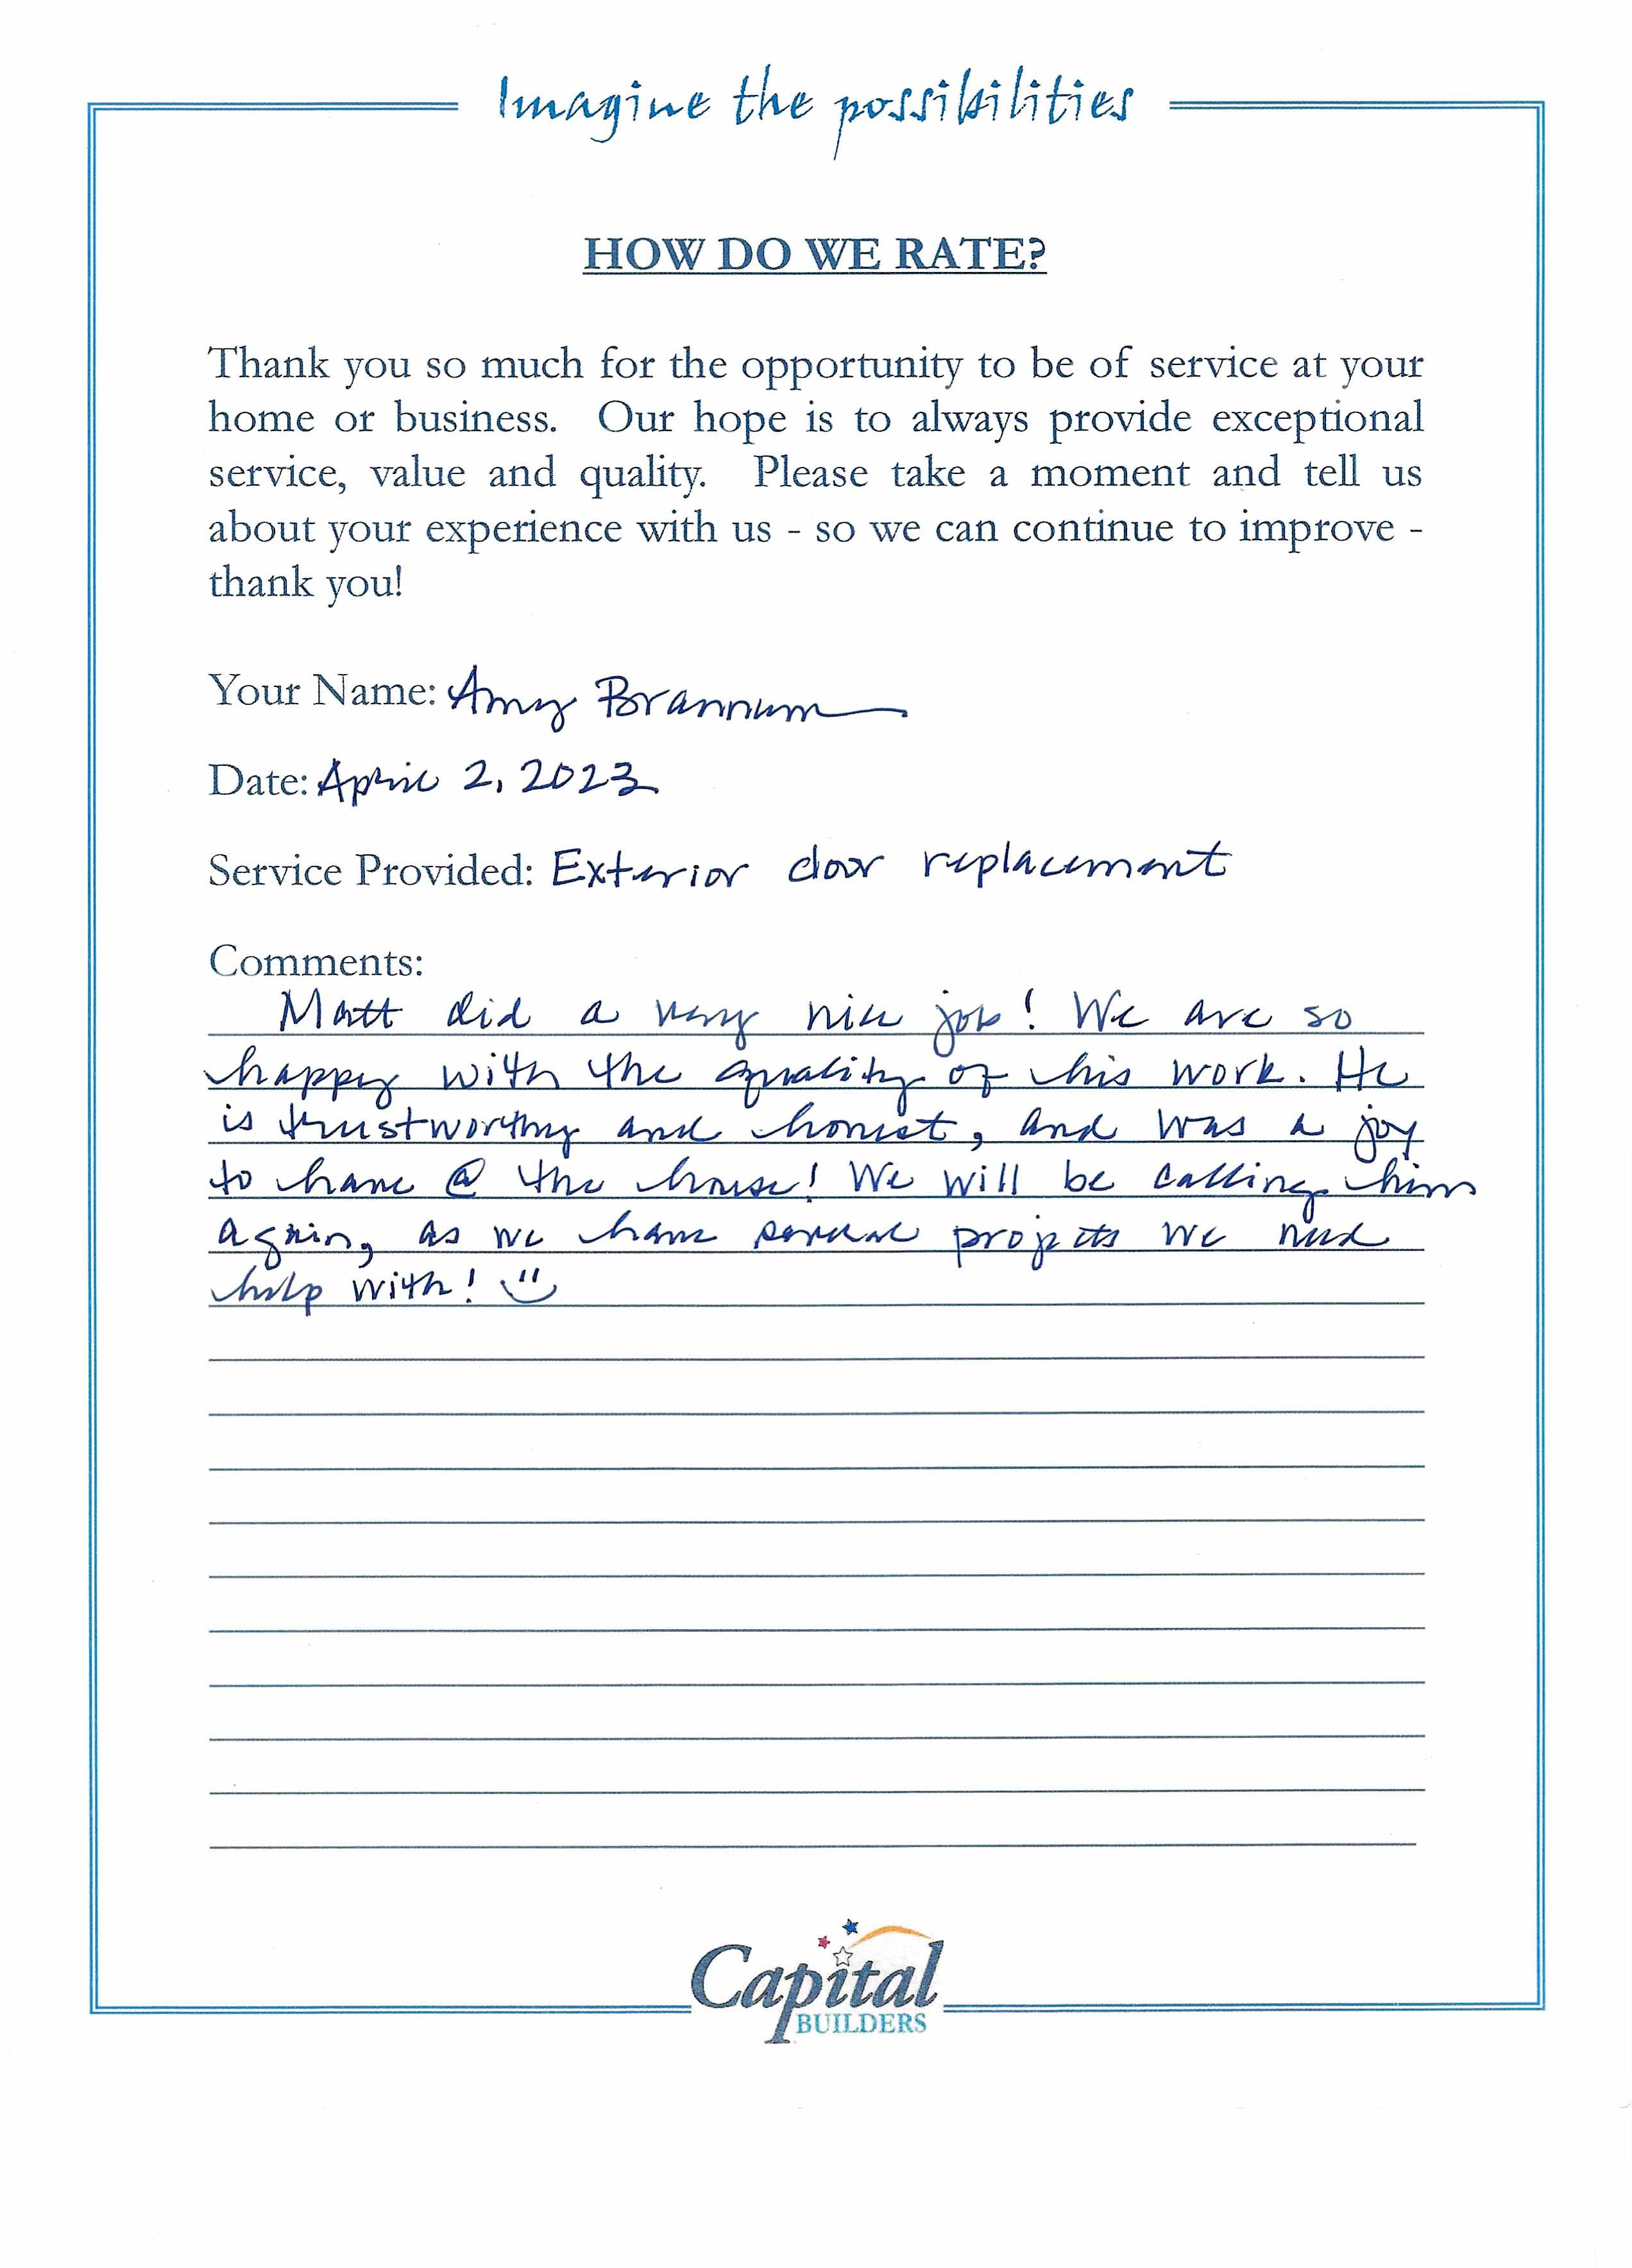 Imagine the possibilities
HOW DO WE RATE?
Thank you so much for the opportunity to be of service at your
home or business. Our hope is to always provide exceptional
service, value and quality. Please take a moment and tell us
about your experience with us - so we can continue to improve -
thank you!
Your Name: Amy Brannum
Date: April 2, 2023
Service Provided: Exterior door replacement
Comments:
Matt did a very nice job! We are so
happy with the quality of his work. He
is trustworthy and honest, and was a joy
to have @ the house! We will be calling him
again, as we have several projects we need
help with! 
Capital
BUILDERS